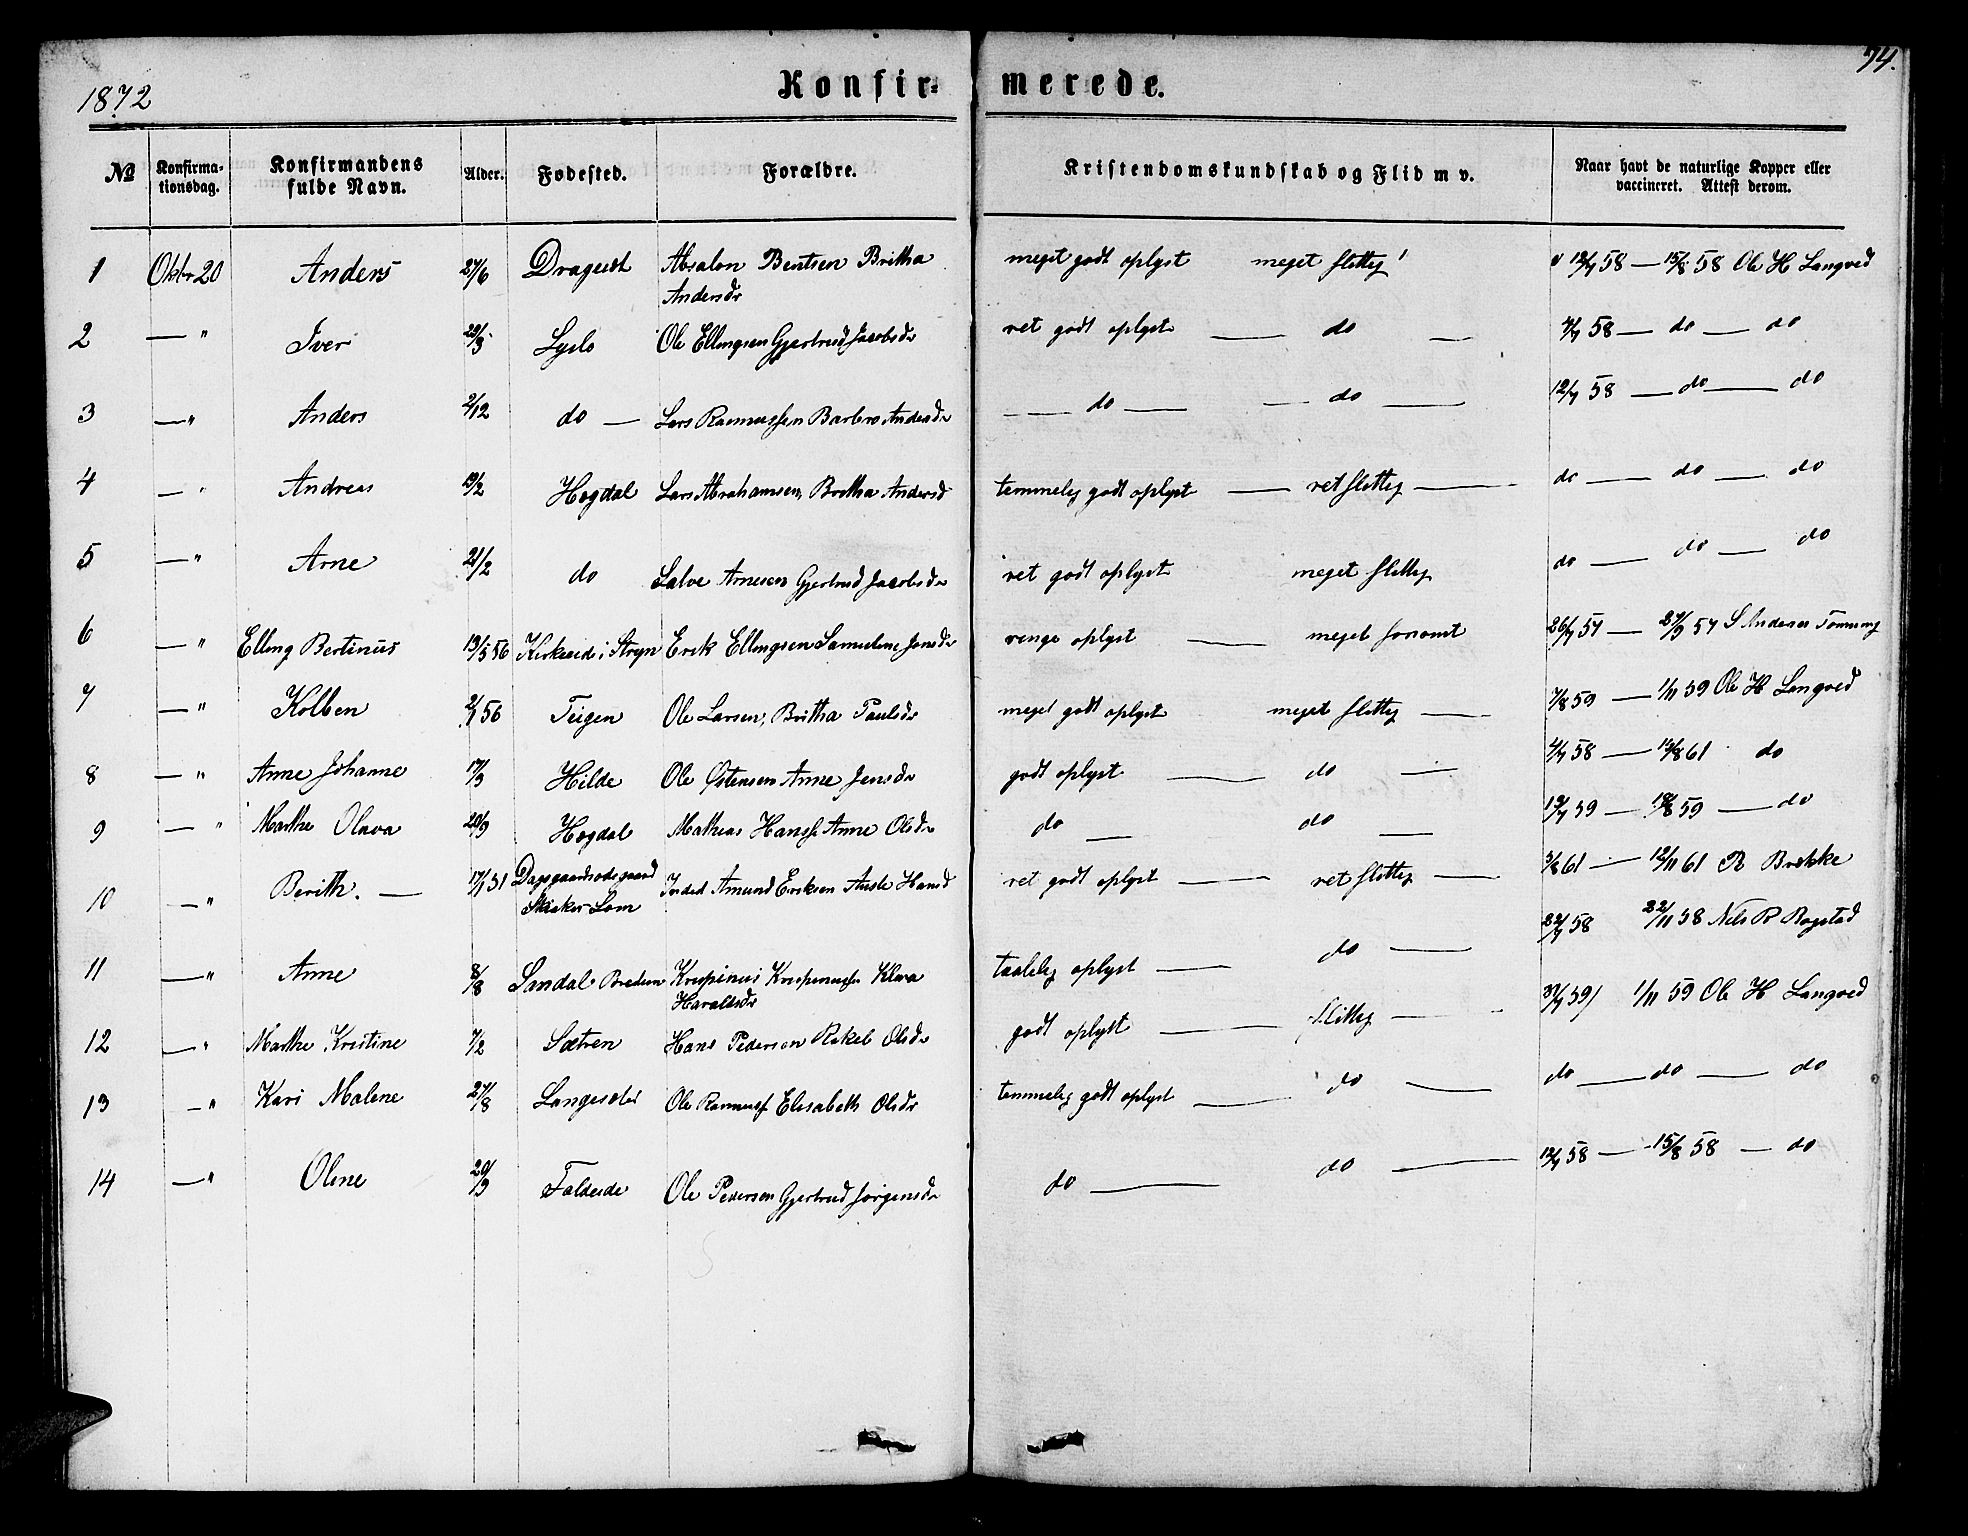 1872
Konfirmerede.
74.
№ Konfirmationsdag. Konfirmandens fulde Navn. Alder. Fødested. Forældre. Kristendomskundskab og Flid m v. Naar havt de naturlige Kopper eller vaccineret. Attest derom.
1 Oktbr 20 Anders 27/6 Drageset Absalon Bentsen Britha Andersdr meget godt oplyst meget flittig 12/7 58 — 15/8 58 Ole H Langved
2 — " Iver Lyslo Ole Ellingsen Gjertrud Jacobsdr ret godt oplyst — do — 58 — do — do
3 — " Anders 2/12 do — Lars Rasmussen Barbro Andersdr — do — — do — 12/7 58 — do — do
4 — " Andreas 19/2 Hogdal Lars Abrahamsen, Britha Andersd temmelig godt oplyst — ret flittig — do — do — do
5 — " Arne 21/2 do Salve Arnesen Gjertrud Jacobsdr ret godt oplyst meget flittig do — do — do
6 — " Elling Bertinus 13/5 56 Kirkeeid i Stryn Erik Ellingsen Samueline Jonsdr oplyst — meget 26/7 57 — 27/9 57 S Andersen Tonning
7 — " Kolben 2/1 56 Teigen Ole Larsen, Britha Paulsdr meget godt oplyst meget flittig — 7/8 59 — 1/11 59 Ole H Langved
8 — " Anne Johanne 17/3 Hilde Ole Østensen Anne Jensdr godt oplyst — do — 4/7 58 — 61 do
9 — " Marthe Olava 20/9 Hogdal Mathias Hanss Anne Olsdr do — do — 19/7 59 — 18/8 59 — do
10 — " Berith. — 17/1 51 Skiaker Lom Amund Eriksen Hansd ret godt oplyst — ret flittig — 3/8 61 — 12/11 61 R Brekke
22/7 58 22/11 58 Nels R Rogstad
11 — " Anne 8/8 Sandal Bredem Krispinus Krispinuss Klara Haraldsdr taalelig oplyst — do — 31/7 59 1/11 59 Ole H Langved
12 — " Marthe Kristine 7/2 Sætren Hans Pedersen Rakel Olsdr godt oplyst — flittig —
13 — " Kari Malene 27/8 Langesæter Ole Rasmuss Elisabeth Olsdr temmelig godt oplyst — do — do — do — do
14 — " Oline 20/9 Faldeide Ole Pedersen Gjertrud Jørgensdr do — do — 12/7 58 — 15/8 58 — do